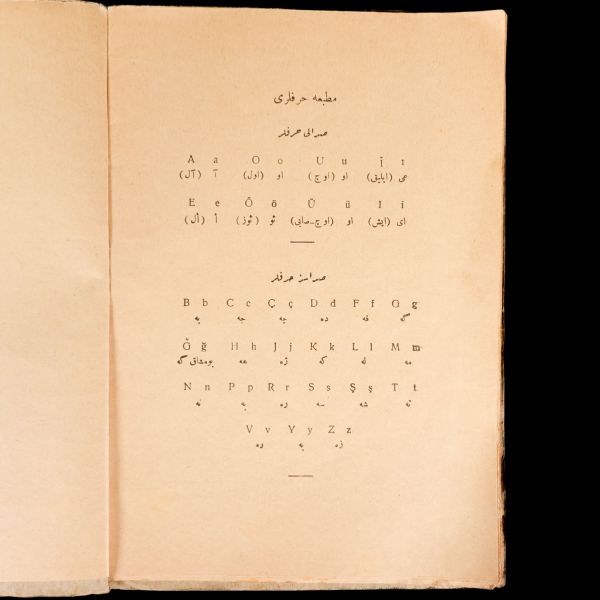 مطبعه حرفلری
صدالی حرفلر
A a O o U u Î ı
آ (آل) او (اول) او (اوچ) ی (ایلیق)
E e Ö ö Ü ü I i
أ (أل) ئو (ئوز) او (اوچ-صابی) ای (ایش)
صداسز حرفلر
B b C c Ç ç D d F f G g
به جه چه ده فه گه
Ğ ğ H h J j K k L l M m
یومشاق گه هه ژه که له مه
N n P p R r S s Ş ş T t
نه په ره سه شه ته
V v Y y Z z
وه یه زه